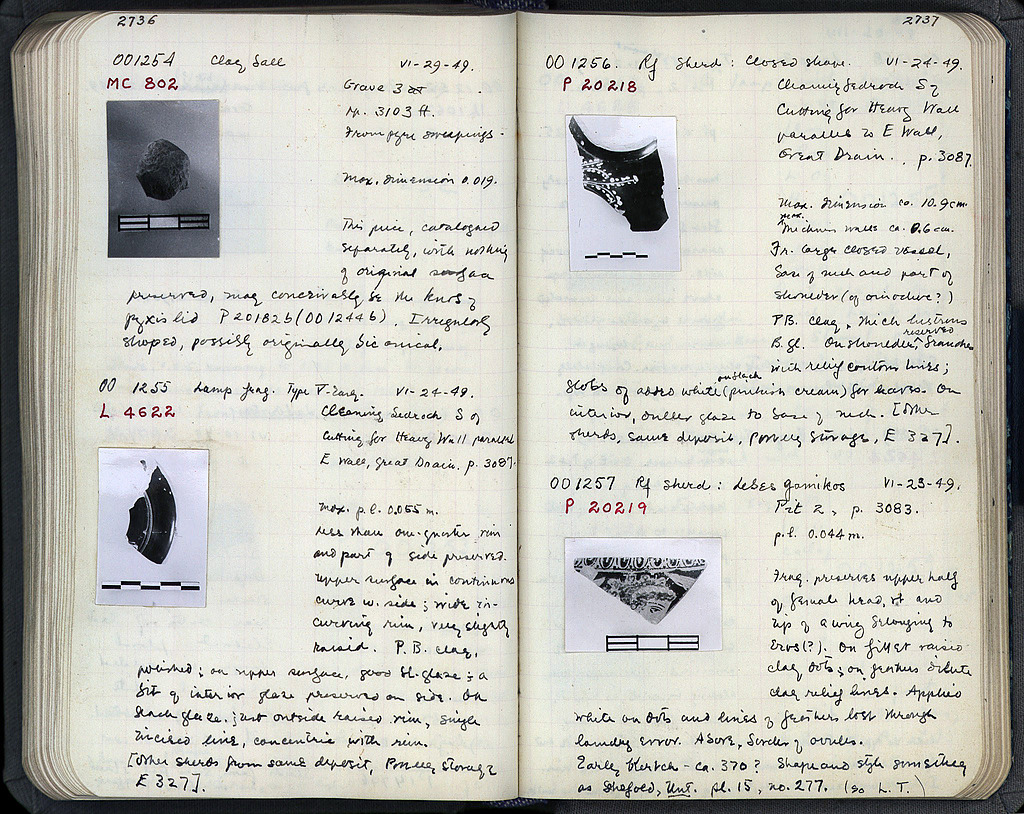 2736
001254 Clay ball VI-29-49.
MC 802
Grave 3
Np. 3103 ff.
From pyre sweepings.
Max. dimension 0.019.
This piece, catalogued
separately, with nothing
of original surface
preserved, may conceivably be the knob of
pyxis lid P 20182b (001244b). Irregularly
shaped, possibly originally biconical.
001255 Lamp frag. Type V VI-24-49.
L 4622
Cleaning bedrock S of
cutting for Heavy Wall parallel
E Wall, Great Drain. p. 3087.
Max. p.l. 0.055 m.
Less than one-quarter rim
and part of side preserved.
Upper surface in continuous
curve w. side; wide in-
curving rim, very slightly
raised. P.B. clay,
polished; on upper surface, good bl. glaze; a
bit of interior glaze preserved on side. On
black glaze, just outside raised rim, single
incised line, concentric with rim.
[Other sherds from same deposit, Pottery Storage
E 327].
2737
001256. Rf Sherd: Closed shape. VI-24-49.
P 20218
Cleaning bedrock S of
Cutting for Heavy Wall
parallel to E Wall,
Great Drain. p. 3087.
Max. dimension ca. 10.9cm
max.
Thickness walls ca. 0.6 cm.
Fr. large closed vessel,
base of neck and part of
shoulder (of oinochoe?)
P.B. clay, thick lustrous
reserved
B.gl. On shoulder, branches
with relief contour lines;
on black
globs of added white (pinkish cream) for leaves. On
interior, duller glaze to base of neck. [Other
sherds, same deposit, Pottery Storage, E 327].
001257 Rf Sherd: lebes gamikos VI-23-49.
P 20219
Pit 2, p. 3083.
p.l. 0.044 m.
Frag. preserves upper half
of female head, rt and
tip of a wing belonging to
Eros(?). On fillet raised
clay dots; on feathers dilute
clay relief lines. Applied
white on dots and lines of feathers lost through
laundry error. Above, border of ovules.
Early Kertch - ca. 370? Shape and style something
as Shefold, Unt. pl. 15, no. 277. (so L.T.)